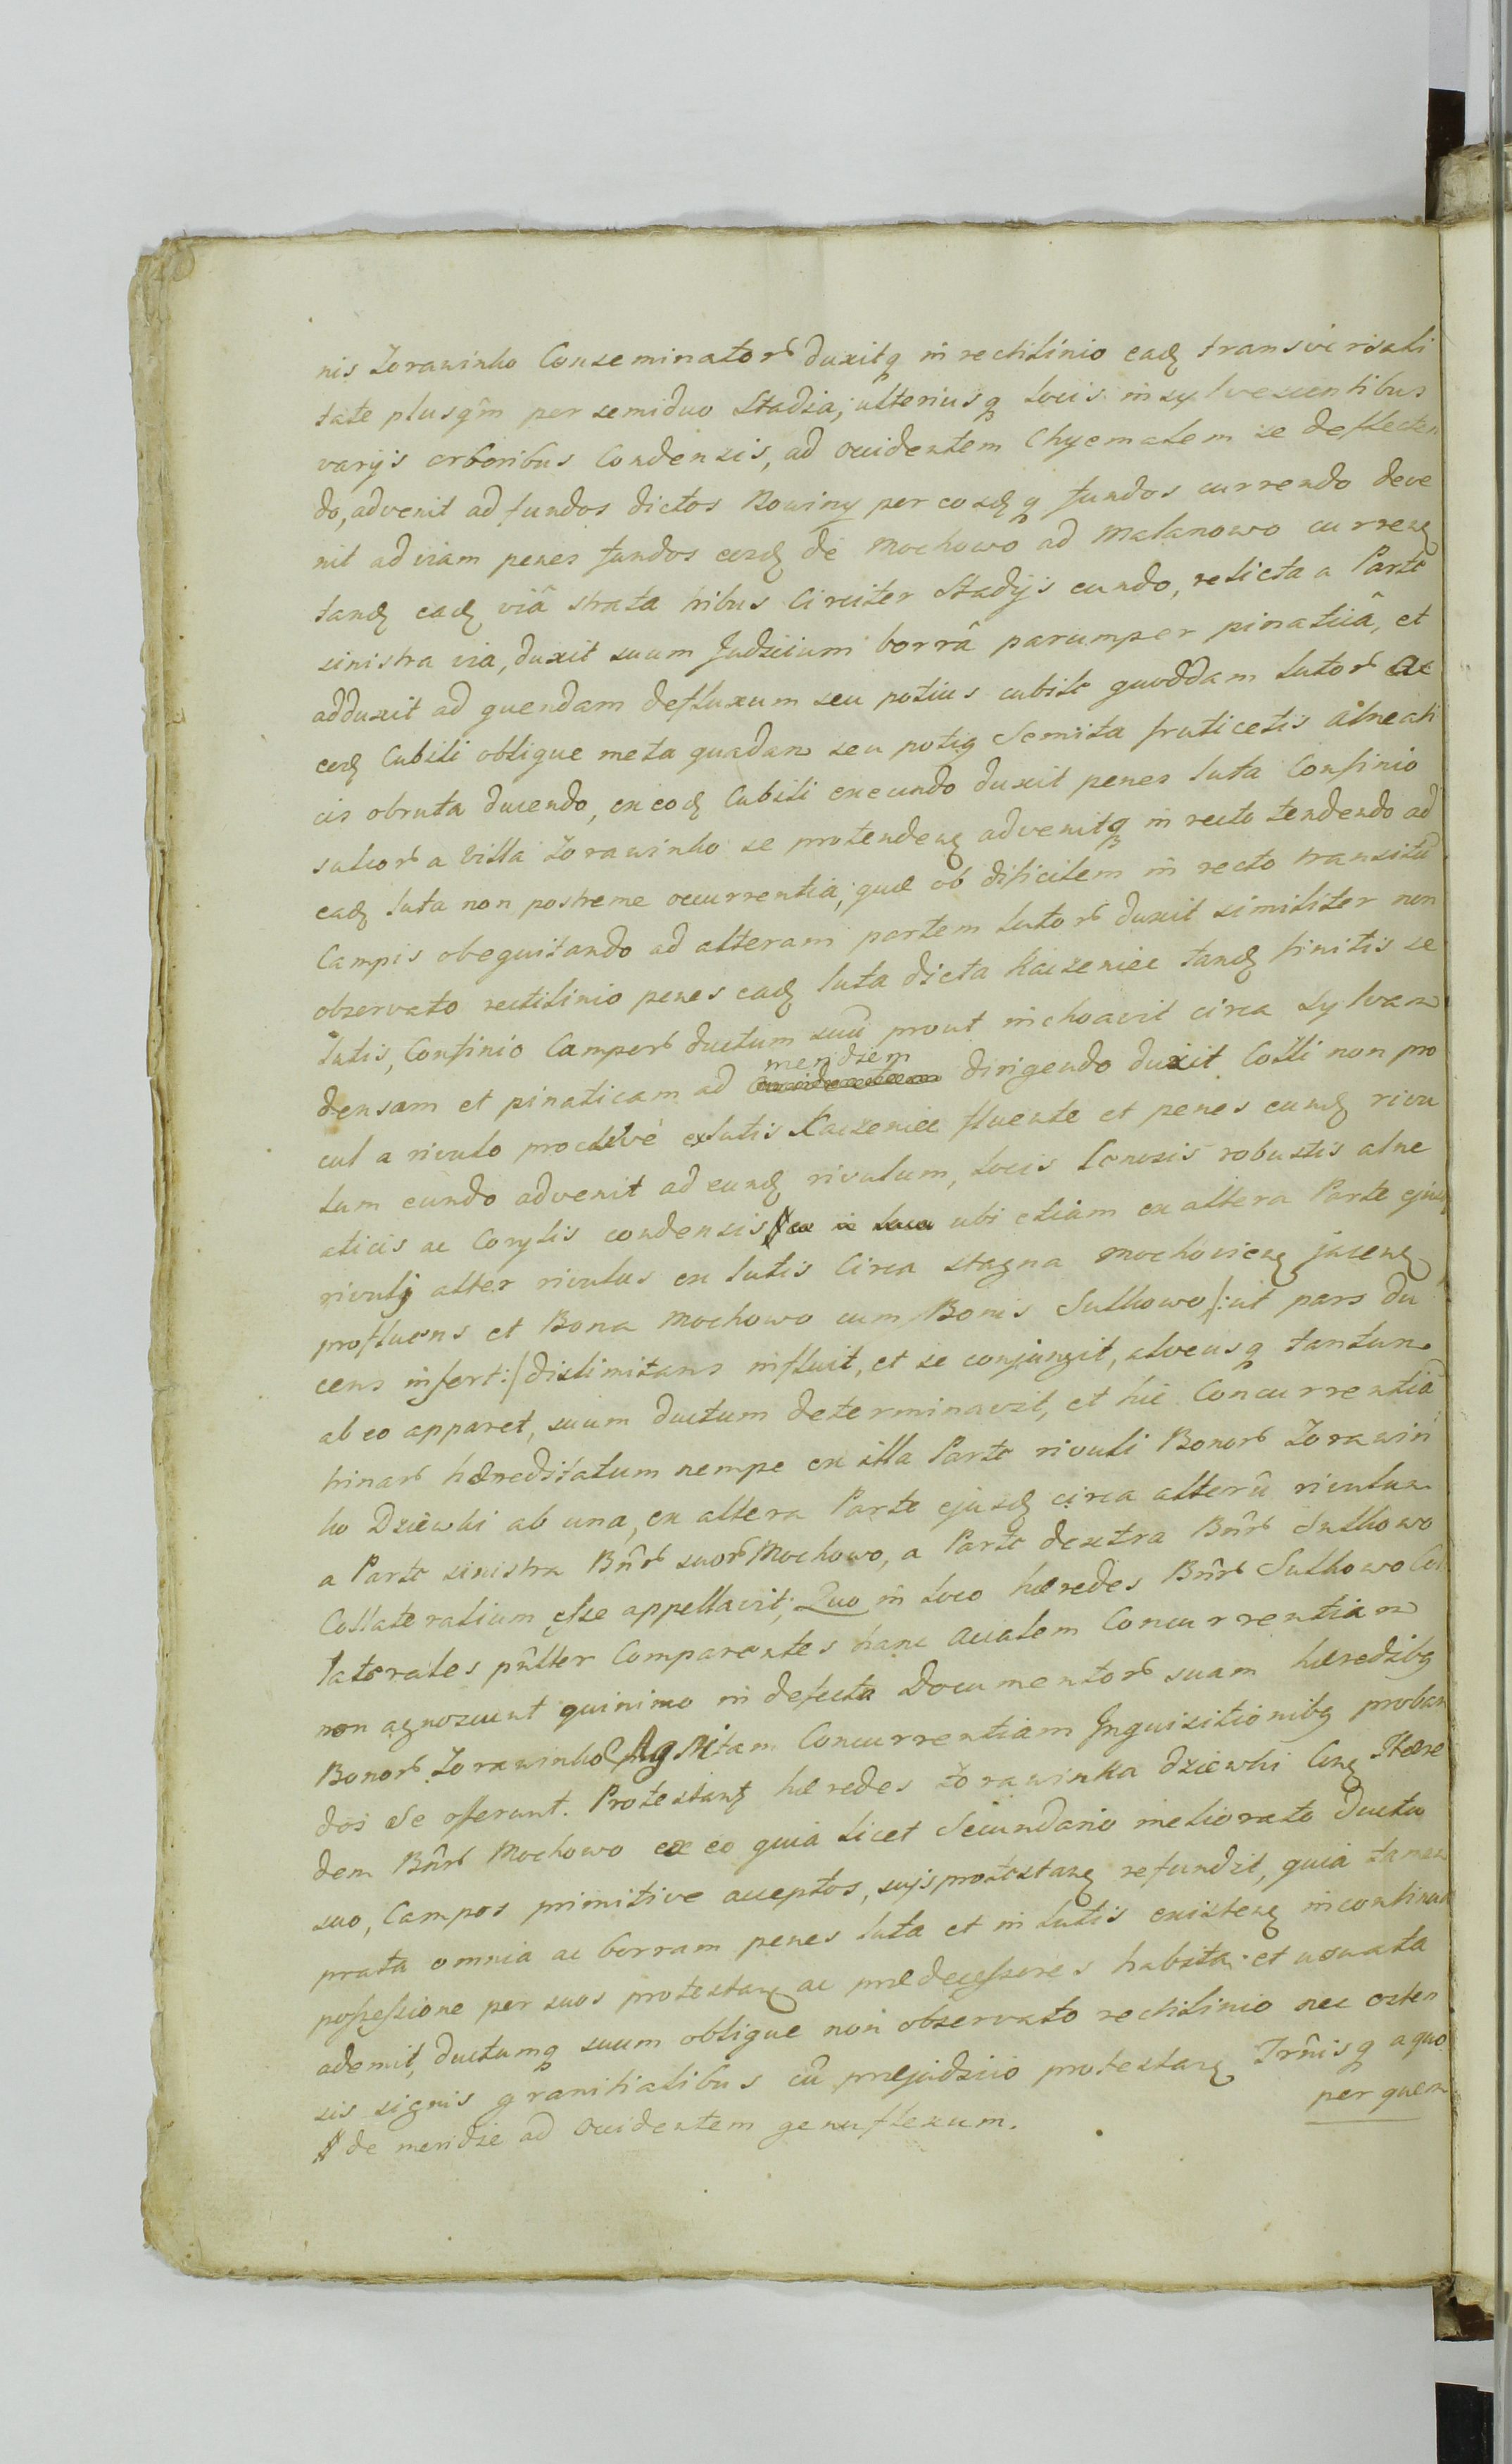 nis Zorawinko Conseminator duxitq in rectilinio eadꝫ transversali
tate plusqm̃ per semiduo Stadia; ulteriusq locis insylvescentibus
varijs arboribus Condensis, ad occidentem Chyemalem se deflecten
do, advenit ad fundos dictos Nowiny per eosdꝫq fundos currendo deve
nit ad viam penes fundos eosdꝫ de Mochowo ad Malanowo currenꝫ
tandꝫ eadꝫ viâ strata tribus Circiter Stadijs eundo, relicta a Parte
sinistra via, duxit suum Judicium borrâ parumper pinaticâ, et
adduxit ad quendam defluxum seu potius cubile quoddam lutor ac
eodꝫ Cubili oblique meta quadam seu potiꝯ Semita fruticetis alneati
cis obruta ducendo, ex eodꝫ Cubili exeundo duxit penes luta Confinio
sulcor a Villa Zorawinko se protendenꝫ advenitq in recto tendendo ad
eadꝫ luta non postreme occurrentia; quæ ob dificilem in recto transitũ
Campis obequitando ad alteram partem lutor duxit similiter non
observato rectilinio penes eadꝫ luta dicta Kaczeniec tandꝫ finitis se
lutis, Confinio Camper ductum suũ prout inchoavit circa Sylvam
densam et pinaticam ad meridiem dirigendo duxit Colli non pro
cul a rivulo proclivè ex lutis Kaczeniec fluente et penes eundꝫ rivu
lum eundo advenit ad eundꝫ rivulum, locis Cenosis robustis alne
aticis ac Corylis condensis ubi etiam ex altera Parte ejusdꝫ
rivuli alter rivulus ex lutis Circa stagna Mochovienꝫ jacenꝫ
profluens et Bona Mochowo cum Bonis Sulkowo /: ut pars du
cens infert :/ dislimitans influit, et se conjungit, alveusq tantum
ab eo apparet, suum ductum determinavit, et hic Concurrentiã
trinar hæreditatum nempe ex illa Parte rivuli Bonor Zorawin
ko Dziewki ab una, ex altera Parte ejusdꝫ circa alterũ rivulum
a Parte sinistra Bñr suor Mochowo, a Parte dextra Bñr Sulkowo
Collateralium esse appellavit; Quo in loco hæredes Bñr Sulkowo Col
laterales pñlter Comparentes hanc acialem Concurrentiam
non agnoscunt quinimo in defectu Documentor suam hæredibꝯ
Bonor Zorawinko Agnitam Concurrentiam Inquisitionibꝯ proban
dos se offerunt. Protestantꝫ hæredes Zorawinka dziewki Conꝫ Hære
dem Bñr Mochowo ex eo quia licet Secundario meliorato Ductu
suo, Campos primitive acceptos, sujs protestanꝫ refundit, quia tamen
prata omnia ac borram penes luta et in lutis existenꝫ in continua
possessione per suos protestanꝫ ac prædecessores habita et usuata
ademit, ductumq suum oblique non observato rectilinio nec osten
sis signis granitialibus cũ præjudicio protestanꝫ Trm̃isq a quo
de meridie ad Occidentem genuflexum.
per quem